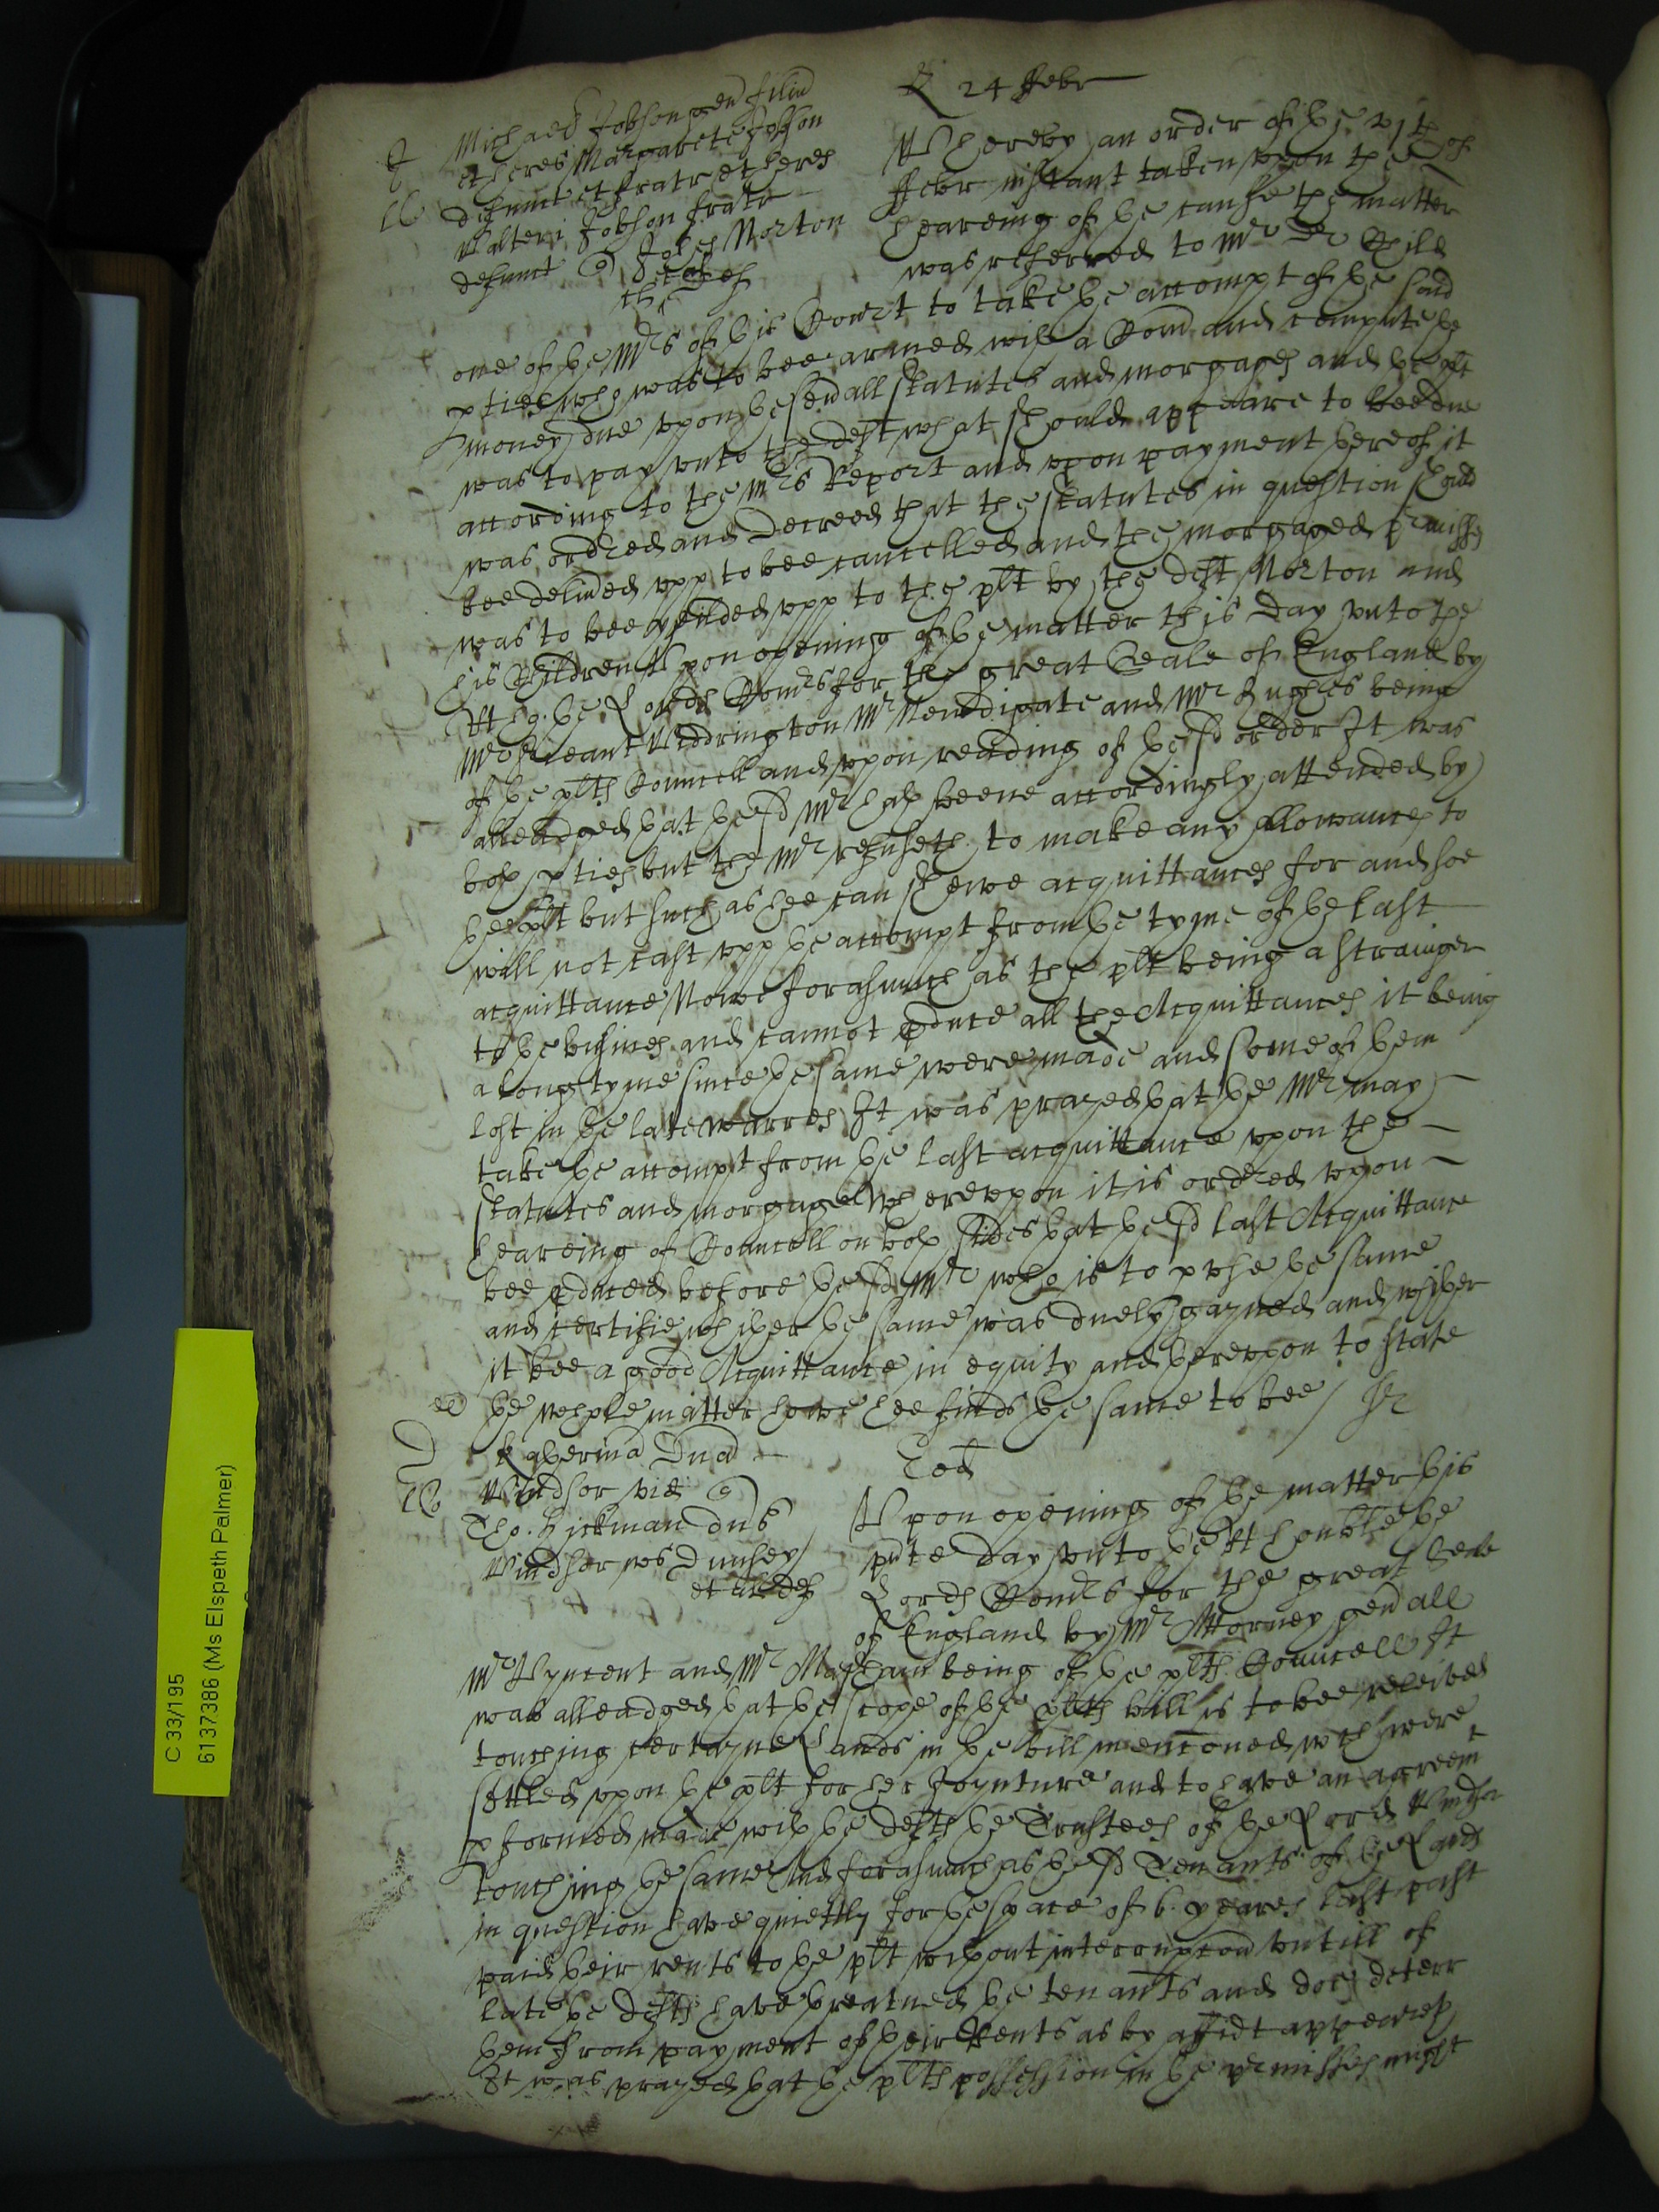 24 ffebr
Michaell Jobson gen filius
et heres Margarete Jobson
defunct et fratr et heres
Walteri Jobson fratr
defunct John Morton
et al defts
Whereby an order of the vjth of
ffebr instant taken upon the
heareing of the cause the matter
was referred to Mr Dr Child
one of the Mrs of this Court to take the accompt of the said
pties who was to bee armed with a Com and compute the
money due upon the sevall statutes and morgages and the plt
was to pay unto the deft what should appeare to bee due
according to the Mrs Report and upon payment thereof it
was ordred and decreed that the statutes in question should
bee delivred upp to bee cancelled and the morgaged pmisses
was to bee yeilded upp to the plt by the deft Morton and
his Children Upon opening of the matter this day unto the
Rt Ho. the Lords Comrs for the great Seale of England by
Mr Serjeant Widdrington Mr Newdigate and Mr Hughes being
of the plts Councell and upon reading of the sd order It was
alleadged that the sd Mr hath beene accordingly attended by
both pties but the Mr refuseth to make any allowances to
the plt but such as hee can shewe acquittances for and soe
will not cast upp the accompt from the tyme of the last
acquittance Nowe forasmuch as the plt being a strainger
to the busines and cannot pduce all the Acquittances it being
a long tyme since the same were made and some of them
lost in the late warres It was prayed that the Mr may
take the accompt from the last acquittance upon the
statutes and morgages Whereupon it is ordred upon
heareing of Councell on both sides that the sd last Acquittance
bee pduced before the sd Mr who is to pvse the same
and certifie whether the same was duely gayned and whether
it bee a good Acquittance in equity and thereupon to state
the whole matter howe hee finds the same to bee /
Katherina Dna
Windsor vid
Tho. Hickman dns
Windsor Dunsey
et al defts
Eod
Upon opening of the matter this
pnte day unto the Rt honble the
Lords Comrs for the great Seale
of England by Mr Attorney genall
Mr Vyncent and Mr being of the plts Councell It
was alleadged that the scope of the plts bill is to bee releived
touching certayne Lands in the bill menconed wch were
settled upon the plt for her Joynture and to have an agreemt
pformed made with the defts the Trustees of the Lord Windsor
touching the same And forasmuch as the sd Tenants of the Lands
in question have quiettly for the space of 6. yeares last past
paid their rents to the plt without interrupcon untill of
late the defts have threatned the tenants and doe deterr
them from payment of their Rents as by affidt appeareth
It was prayed that the plts possession in the premisses might
C 33/195
6137386 (Ms Elspeth Palmer)